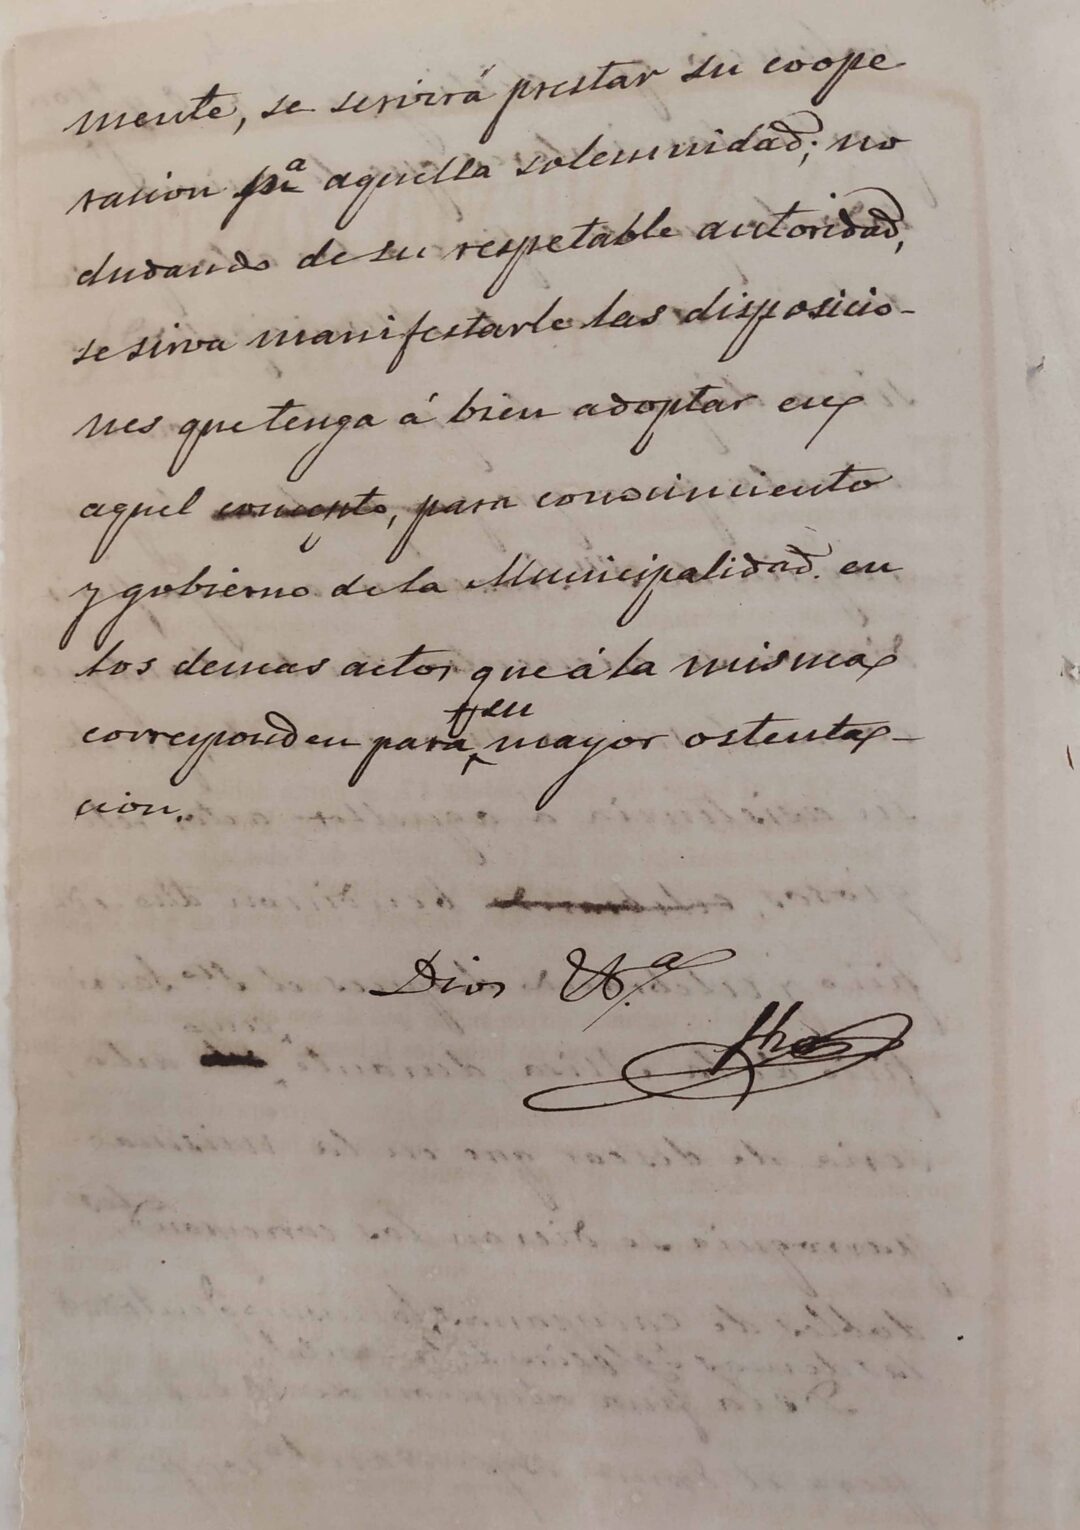 mente, se servirá prestar su coope
racion pª aquella solemnidad; no
dudando de su respetable autoridad,
se sirva manifestarle las disposicio-
nes que tenga á bien adoptar en
aquel concepto, para conocimiento
y gobierno de la Municipalidad. en
los demas actos que á la misma
su
corresponden para mayor ostenta-
cion.
Dios